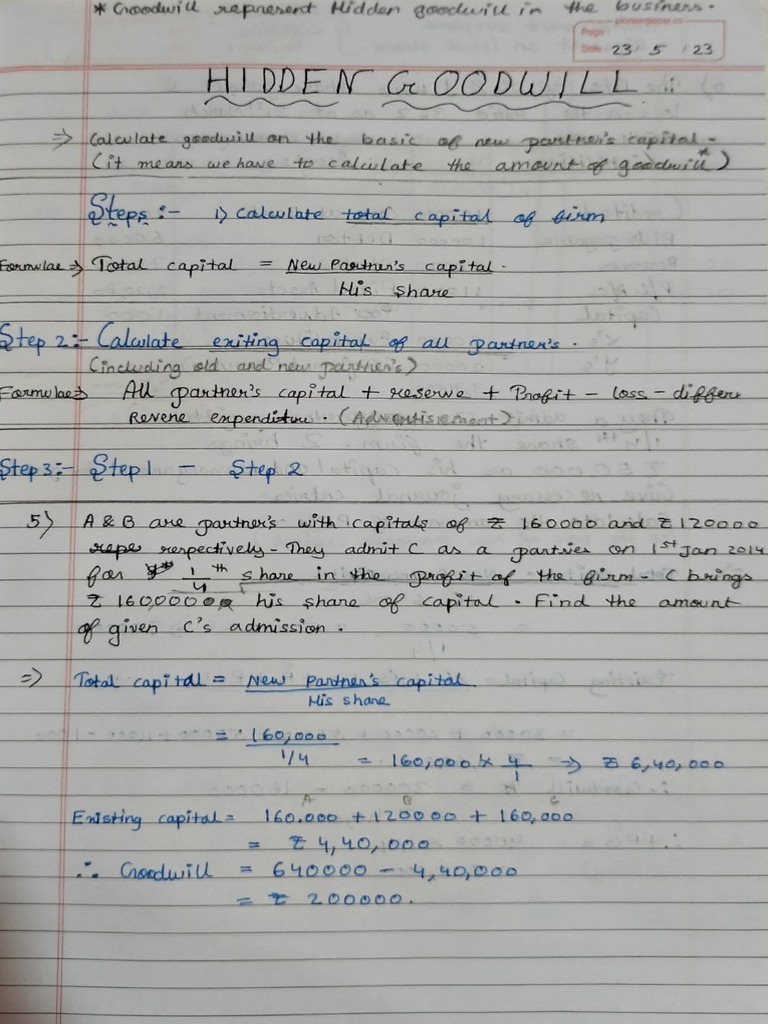 * Goodwill represent Hidden goodwill in the business.
Page:
Date: 23 / 5 / 23
HIDDEN GOODWILL :
⇒ Calculate goodwill on the basic of new partner's capital -
(it means we have to calculate the amount of goodwill*)
Steps :- 1) Calculate total capital of firm
Formulae ⇒ Total capital = New Partner's capital.
His share
Step 2:- Calculate exiting capital of all partner's .
(including old and new partner's)
Formulae ⇒ All partner's capital + reserve + Profit - loss - differe
Revene expenditure. (Advertisement)
Step 3:- Step 1 - Step 2
5) A & B are partner's with capitals of ₹ 160000 and ₹ 120000
repe respectively - They admit C as a partries on 1st Jan 2014
for 1/4 th share in the profit of the firm - C brings
₹ 160,000 his share of capital . Find the amount
of given C's admission .
⇒ Total capital = New Partner's capital
His share
= 160,000
1/4 = 160,000 × 4/1 ⇒ ₹ 6,40,000
A B C
Existing capital = 160.000 + 120000 + 160,000
= ₹ 4,40,000
∴ Goodwill = 640000 - 4,40,000
= ₹ 200000.